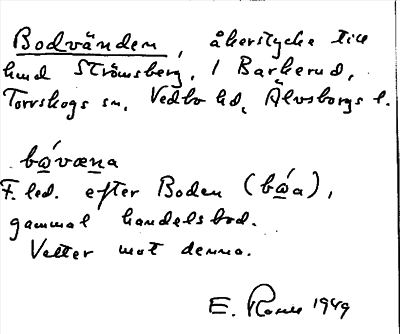 Bodvänden, åkerstycke till
lund Strömsberg, 1 Barkerud,
Torrskogs sn, Vedbo hd, Älvsborgs l.
bǻvæna
F. led. efter Boden (bǻa),
gammal handelsbod.
Vetter mot denna.
E. 1949